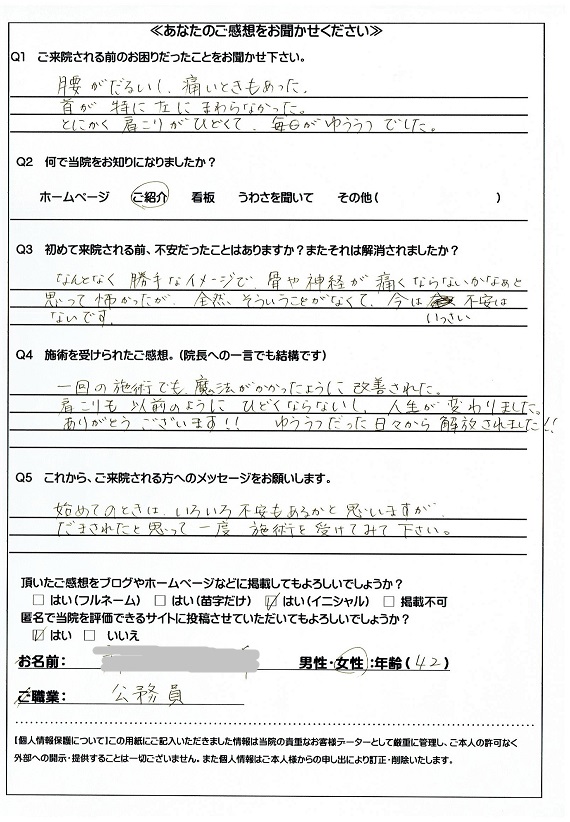 ≪あなたのご感想をお聞かせください≫
Q1 ご来院される前のお困りだったことをお聞かせ下さい。
腰がだるいし、痛いときもあった。
首が 特に 左に まわらなかった。
とにかく 肩こりがひどくて、毎日がゆううつでした。
Q2 何で当院をお知りになりましたか？
ホームページ ご紹介 看板 うわさを聞いて その他( )
Q3 初めて来院される前、不安だったことはありますか？またそれは解消されましたか？
なんとなく 勝手なイメージで、骨や神経が 痛くならないかなぁと
思って 怖かったが、全然、そういうことがなくて、今は 不安は
いっさい
ないです。
Q4 施術を受けられたご感想。(院長への一言でも結構です)
一回の施術でも、魔法がかかったように 改善された。
肩こりも 以前のように ひどくならないし、人生が 変わりました。
ありがとう ございます!! ゆううつだった 日々から 解放されました!!
Q5 これから、ご来院される方へのメッセージをお願いします。
始めてのときは、いろいろ不安もあるかと 思いますが、
だまされたと思って 一度 施術を受けてみて 下さい。
頂いたご感想をブログやホームページなどに掲載してもよろしいでしょうか？
□ はい(フルネーム) □ はい(苗字だけ) ☑ はい(イニシャル) □ 掲載不可
匿名で当院を評価できるサイトに投稿させていただいてもよろしいでしょうか？
☑ はい □ いいえ
お名前： 男性・女性：年齢(42)
ご職業： 公務員
【個人情報保護について】この用紙にご記入いただきました情報は当院の貴重なお客様データーとして厳重に管理し、ご本人の許可なく
外部への開示・提供することは一切ございません。また個人情報はご本人様からの申し出により訂正・削除いたします。